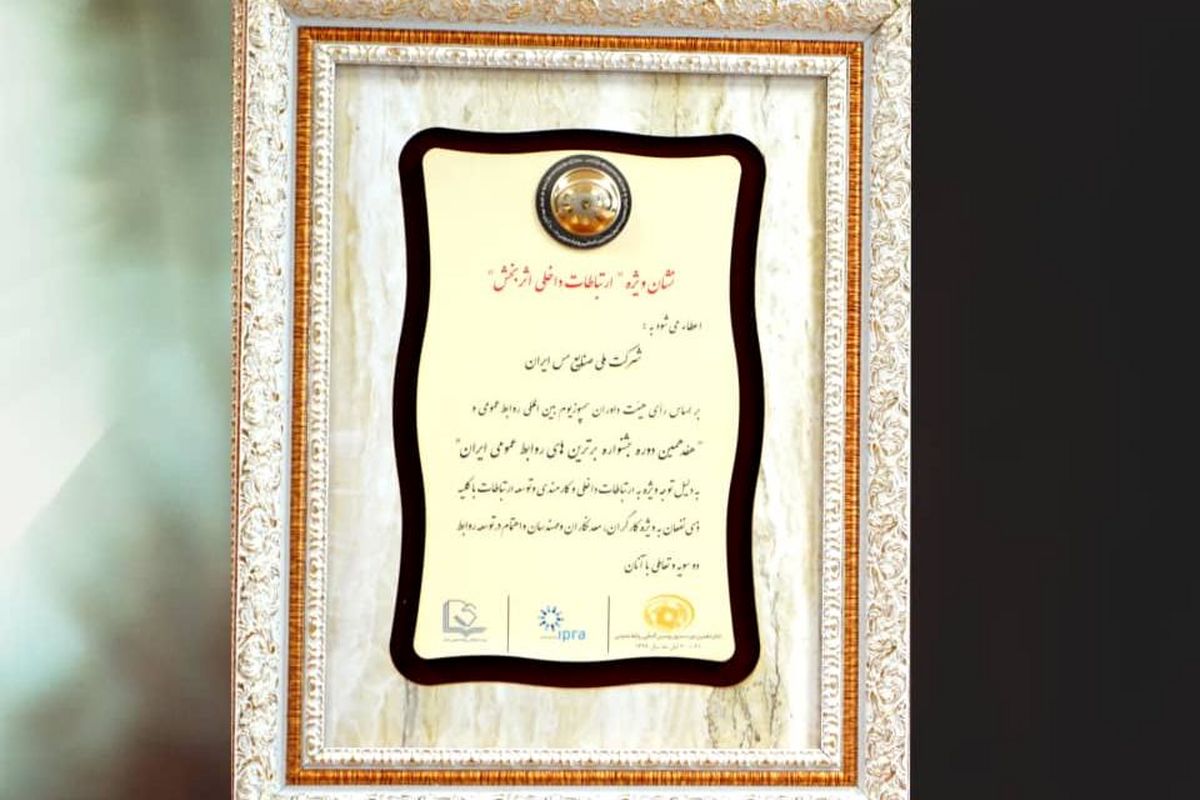 نشان ویژه " ارتباطات داخلی اثربخش"
اعطاء می شود به :
شرکت ملی صنایع مس ایران
بر اساس رأی هیئت داوران سمپوزیوم بین المللی روابط عمومی و
"هفدهمین دوره جشنواره برترین های روابط عمومی ایران"
به دلیل توجه ویژه به ارتباطات داخلی و کارمندی و توسعه ارتباطات با کلیه
ذی نفعان به ویژه کارگران، معدنکاران و مهندسان و اهتمام در توسعه روابط
دو سویه و تعاملی با آنان
ipra